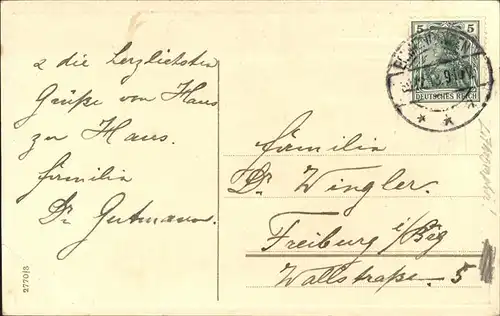 & die herzlichsten
Grüße von Haus
zu Haus.
Familie
Dr. Gutmann.
5 5
DEUTSCHES REICH
Familie
Dr. Wingler.
Freiburg i/Brg
Wallstraße. 5
2770/8